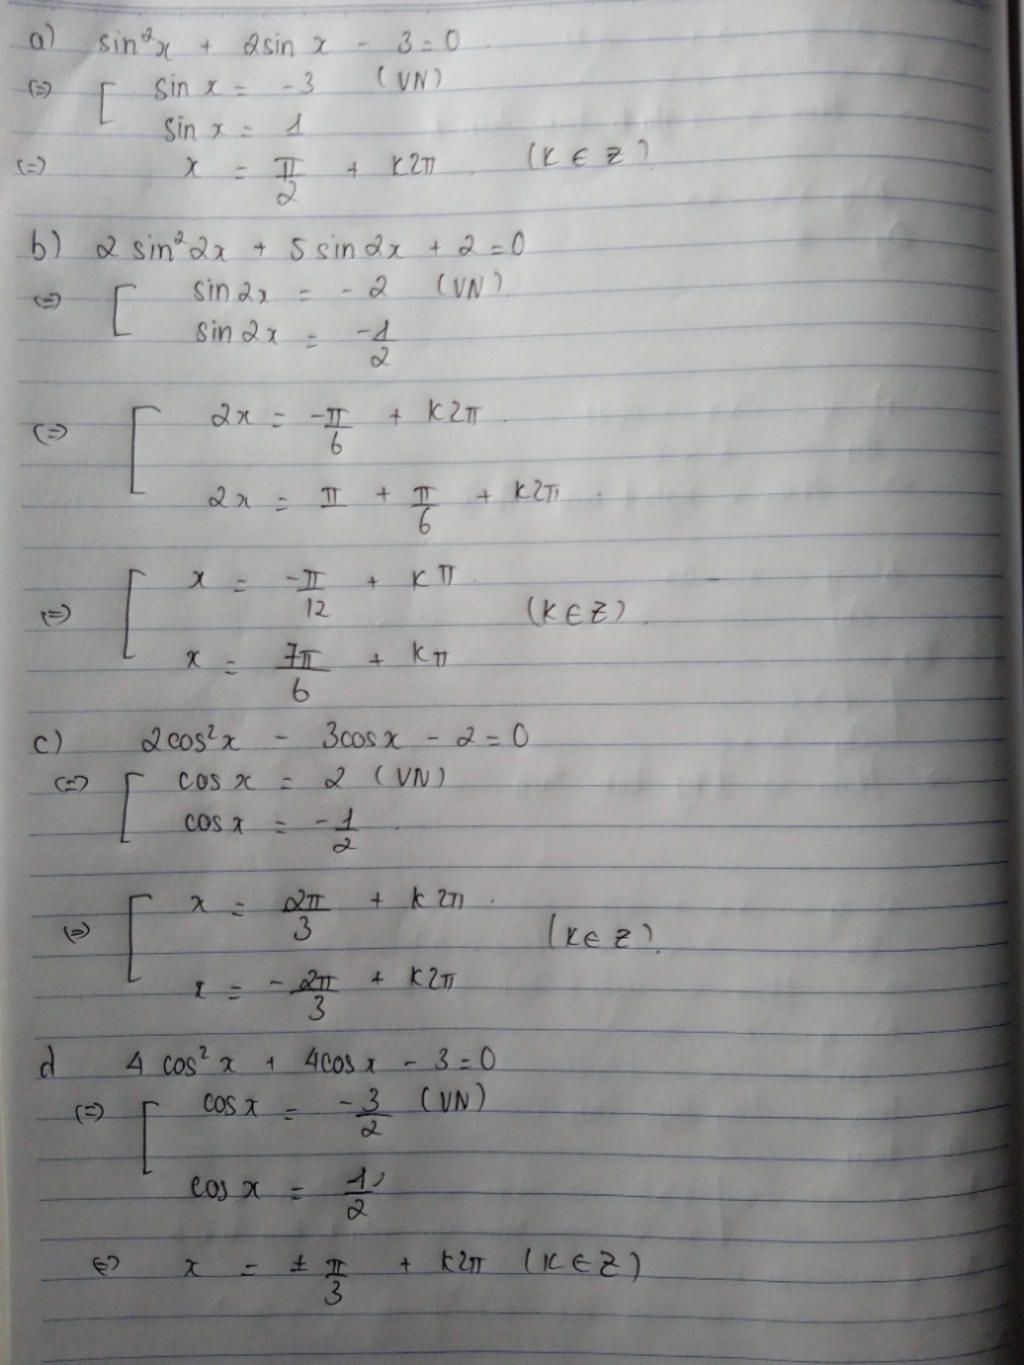 a) sin²x + 2sin x - 3 = 0
(=) [ sin x = -3 (VN)
sin x = 1
(=) x = π/2 + k2π (k ∈ Z)
b) 2 sin²2x + 5 sin 2x + 2 = 0
(=) [ sin 2x = -2 (VN)
sin 2x = -1/2
(=) [ 2x = -π/6 + k2π
2x = π + π/6 + k2π
(=) [ x = -π/12 + kπ
(k ∈ Z)
x = 7π/6 + kπ
c) 2cos²x - 3cosx - 2 = 0
(=) [ cos x = 2 (VN)
cos x = -1/2
(=) [ x = 2π/3 + k2π
(k ∈ Z)
x = -2π/3 + k2π
d 4 cos²x + 4cos x - 3 = 0
(=) [ cos x = -3/2 (VN)
cos x = 1/2
(=) x = ± π/3 + k2π (k ∈ Z)